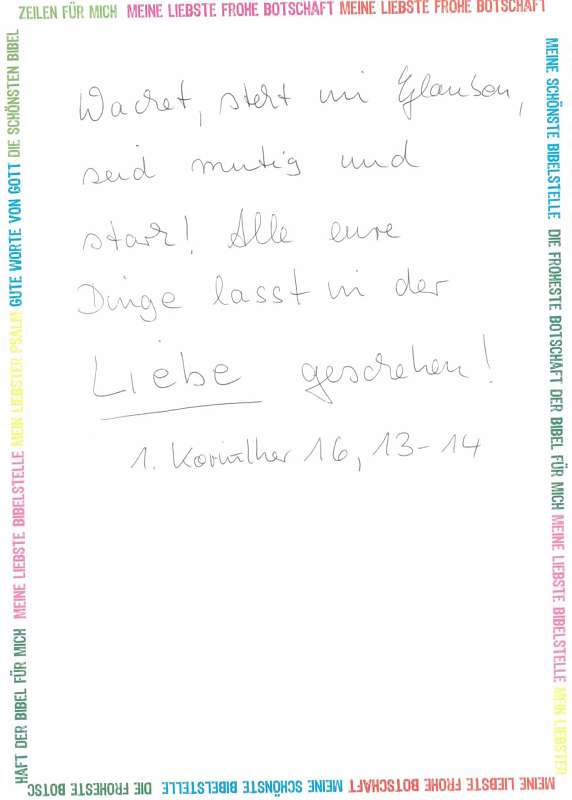 ZEILEN FÜR MICH MEINE LIEBSTE FROHE BOTSCHAFT MEINE LIEBSTE FROHE BOTSCHAFT
MEINE SCHÖNSTE BIBELSTELLE DIE FROHESTE BOTSCHAFT DER BIBEL FÜR MICH MEINE LIEBSTE BIBELSTELLE MEIN LIEBSTER
MEINE LIEBSTE FROHE BOTSCHAFT MEINE SCHÖNSTE BIBELSTELLE DIE FROHESTE BOTSC
HAFT DER BIBEL FÜR MICH MEINE LIEBSTE BIBELSTELLE MEIN LIEBSTER PSALM GUTE WORTE VON GOTT DIE SCHÖNSTEN BIBEL
Wachet, steht im Glauben,
seid mutig und
stark! Alle eure
Dinge lasst in der
Liebe geschehen!
1. Korinther 16, 13-14